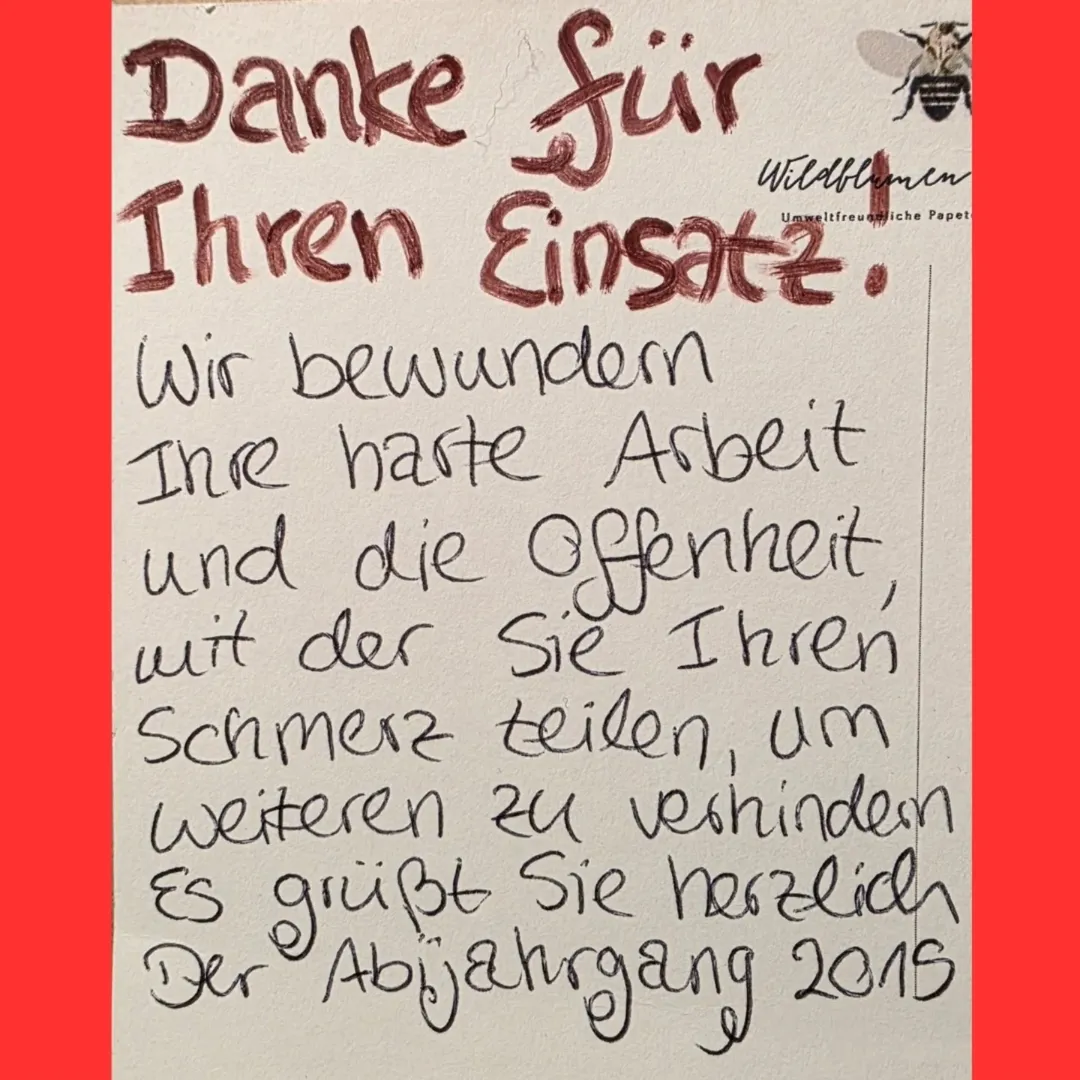 Danke für
Wildblumen
Umweltfreundliche Papet
Ihren Einsatz!
Wir bewundern
Ihre harte Arbeit
und die Offenheit,
mit der Sie Ihren
Schmerz teilen, um
weiteren zu verhindern
Es grüßt Sie herzlich
Der Abijahrgang 2015